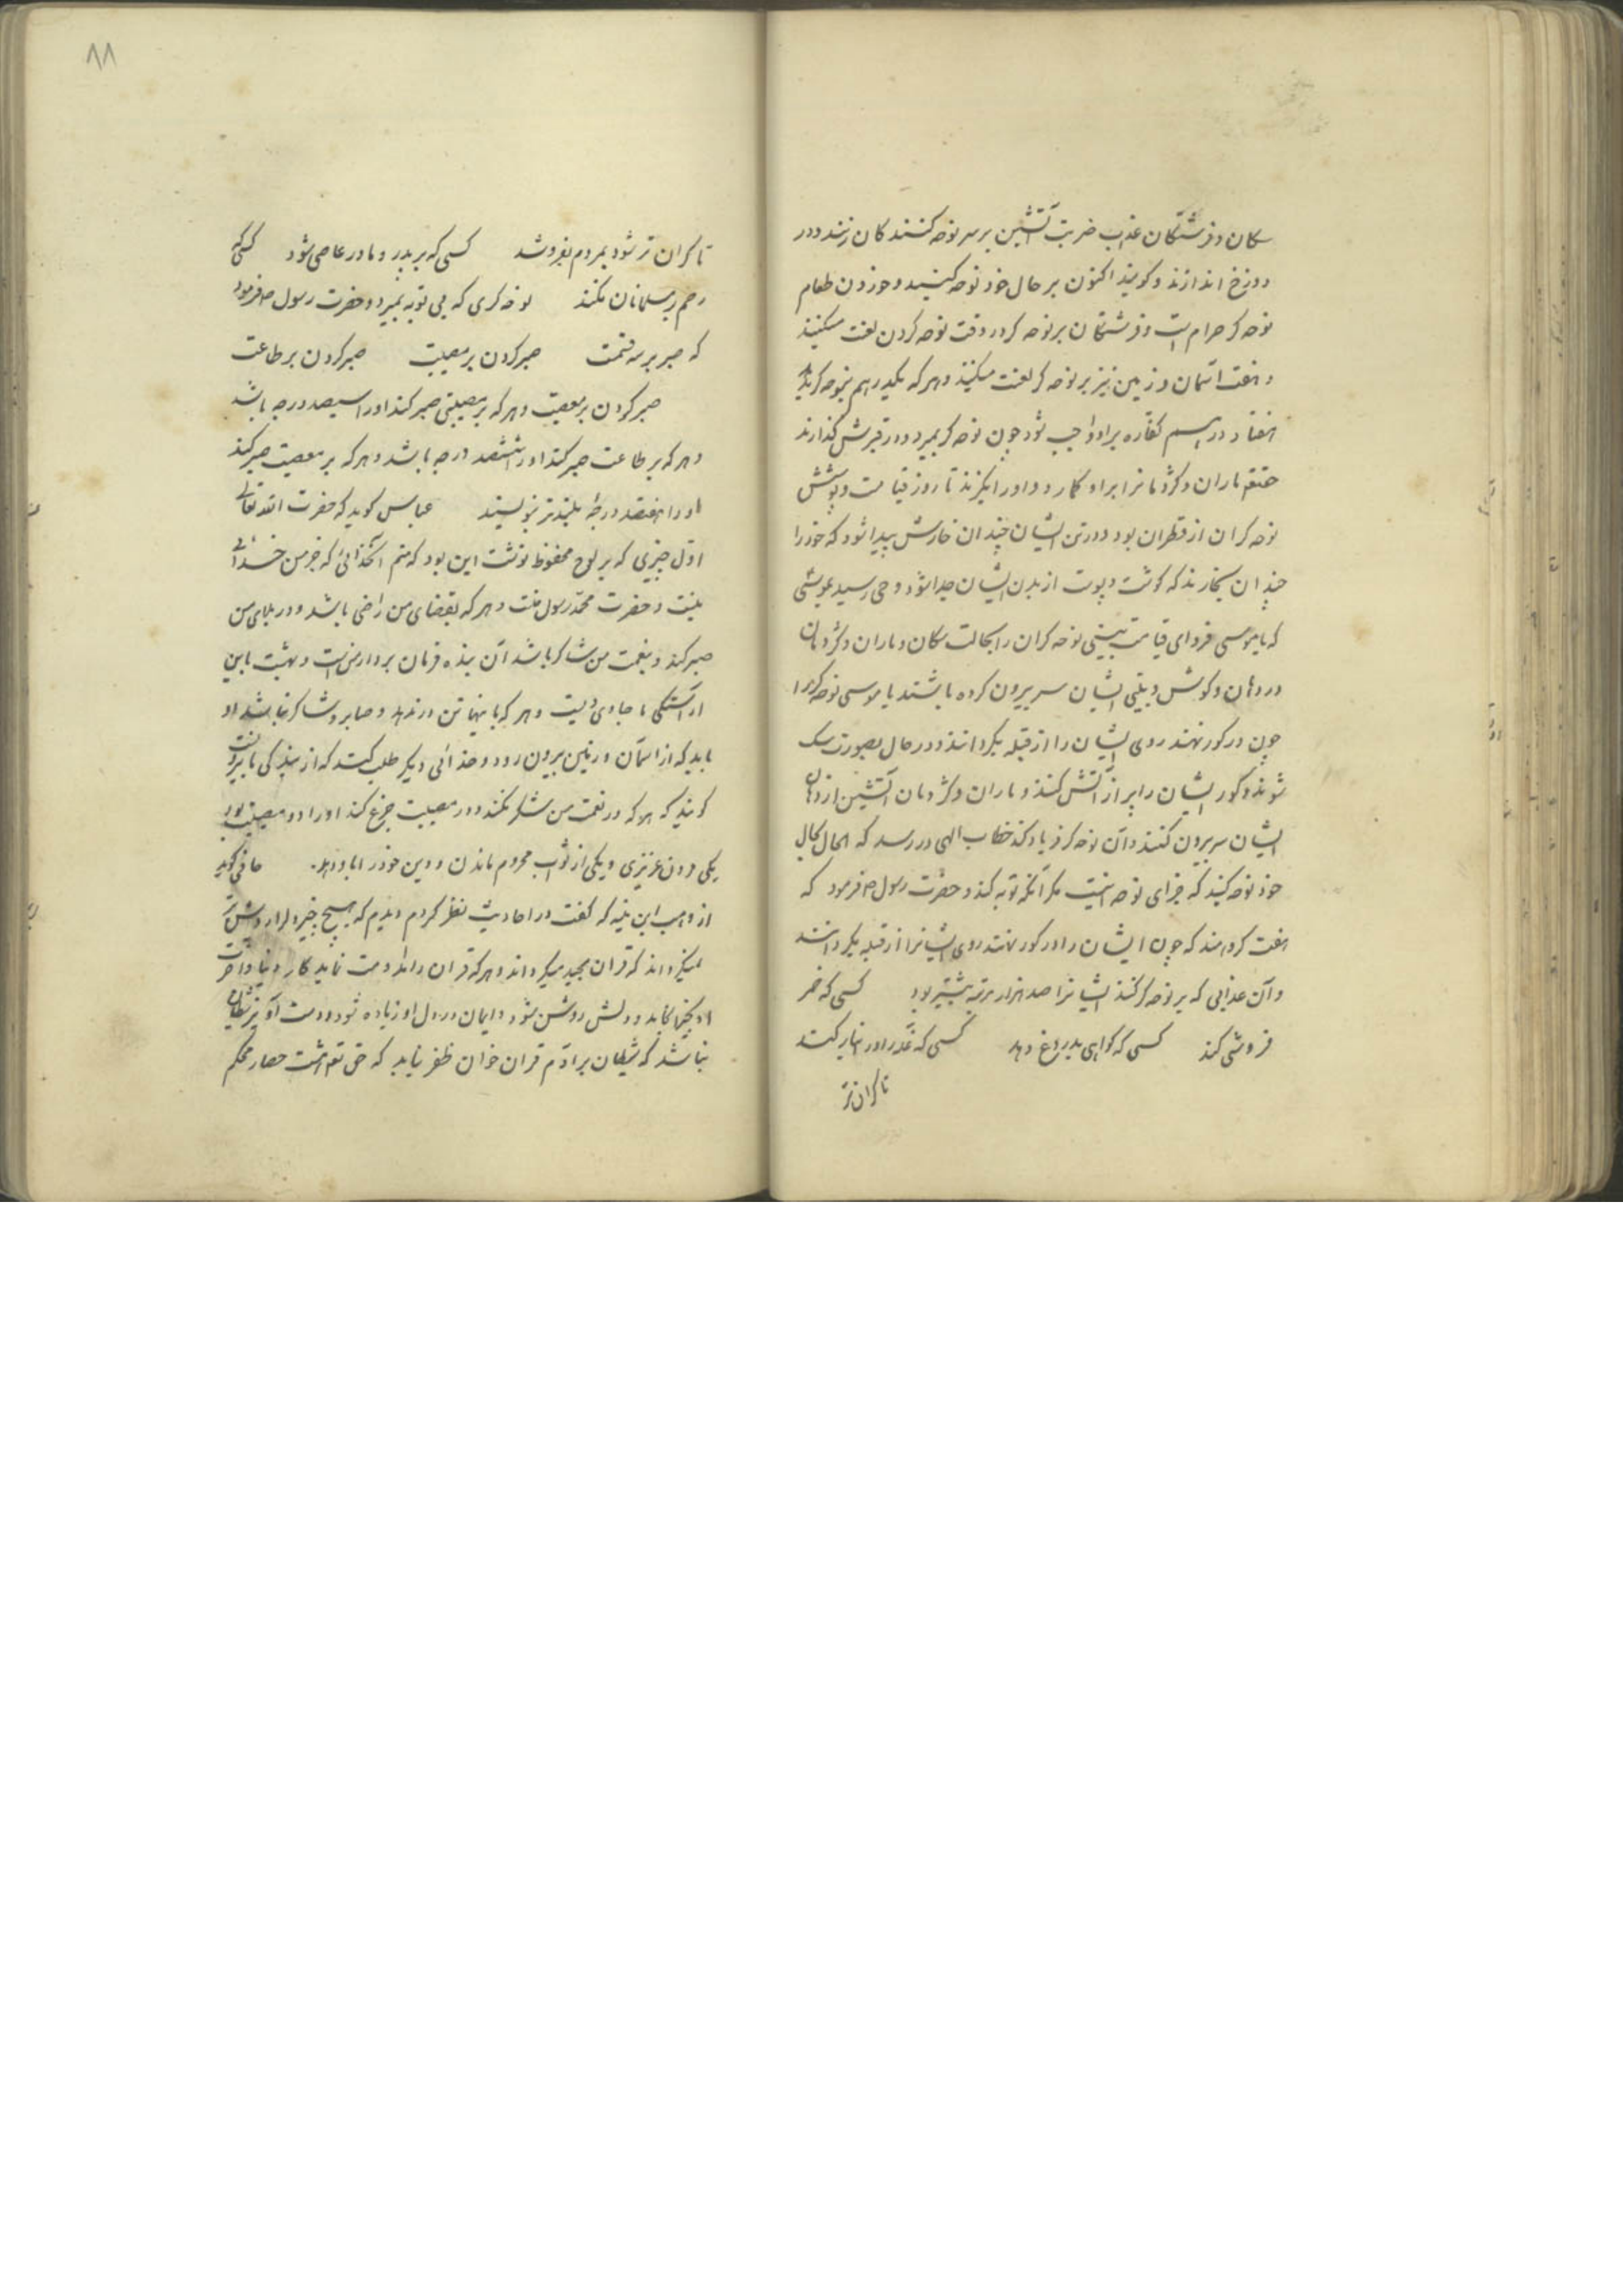 سکان و فرشتکان عذاب ضربت آتشین بر سر نوحه کنندکان زنند و در
دوزخ اندازند و کویند اکنون بر حال خود نوحه کنید و خوردن طعام
نوحه کر حرام است و فرشتکان بر نوحه کر در وقت نوحه کردن لعنت میکنند
و هفت آسمان و زمین نیز بر نوحه کر لعنت میکنند و هر که یکدرهم بنوحه کر
هفتاد درهم کفاره بر او واجب شود چون نوحه کر بمیرد و در قبرش کذارند
حقتعم ماران و کژدمانرا بر او کمارد و او را میکزند تا روز قیامت و پوشش
نوحه کران از قطران بود و در تن ایشان چندان خارش پیدا شود که خود را
چندان بخارند که کوشت و پوست از بدن ایشان جدا شود وحی رسید بموسی
که یا موسی فردای قیامت بینی نوحه کران را بحالت سکان و ماران و کژدمان
در دهان و کوش و بینی ایشان سر بیرون کرده باشند یا موسی نوحه کر را
چون در کور نهند روی ایشان را از قبله بکردانند و در حال بصورت سک
شوند و کور ایشان را پر از آتش کنند و ماران و کژدمان آتشین از دهان
ایشان سر بیرون کنند و آن نوحه کر فریاد کند خطاب الهی در رسد که الحال بحال
خود نوحه کنید که جزای نوحه اینست مکر آنکه توبه کند و حضرت رسول ص فرمود که
هفت کروهند که چون ایشان را در کور نهند روی ایشانرا از قبله بکردانند
و آن عذابی که بر نوحه کر کنند ایشانرا صد هزار مرتبه بیشتر بود کسی که خمر
فروشی کند کسی که کواهی بدروغ دهد کسی که غله را در انبار کند
تا کران تر
٨٨
تا کران تر شود بمردم بفروشد کسی که بر پدر و مادر عاصی شود کسی که
رحم بر مسلمانان نکند نوحه کری که بی توبه بمیرد و حضرت رسول ص فرمود
که صبر بر سه قسمت صبر کردن بر مصیبت صبر کردن بر طاعت
صبر کردن بر معصیت و هر که بر مصیبتی صبر کند او را سیصد درجه باشد
و هر که بر طاعت صبر کند او را ششصد درجه باشد و هر که بر معصیت صبر کند
او را نهصد درجه بلندتر نویسند عباس کوید که حضرت الله تعالی
اول چیزی که بر لوح محفوظ نوشت این بود که منم آنخدائی که جز من خدائی
نیست و حضرت محمد رسول منست و هر که بقضای من راضی باشد و در بلای من
صبر کند و بنعمت من شاکر باشد آن بنده فرمان بردار منست و بهشت باین
آراستکی و هر که باینها تن در ندهد و صابر و شاکر نباشد او
باید که از آسمان و زمین بیرون رود و خدائی دیکر طلب کند که از بندکی ما بیرونست
کویند که هر که در نعمت من شکر نکند و در مصیبت جزع کند او را دو مصیبت بود
یکی عزیزی و یکی از ثواب محروم ماندن و دین خود را بباد دهد حافی کوید
از وهب ابن منبه که کفت در احادیث نظر کردم دیدم که هیچ چیز دلرا روشن تر
نمیکرداند که قران مجید میکرداند و هر که قران را مداومت نماید کار دنیا و آخرت
او نماید و دلش روشن شود و ایمان در دل او زیاده شود و دست آویز شیطان
نباشد که شیطان بر آدم قران خوان ظفر نیابد که حق تعم هشت حصار محکم